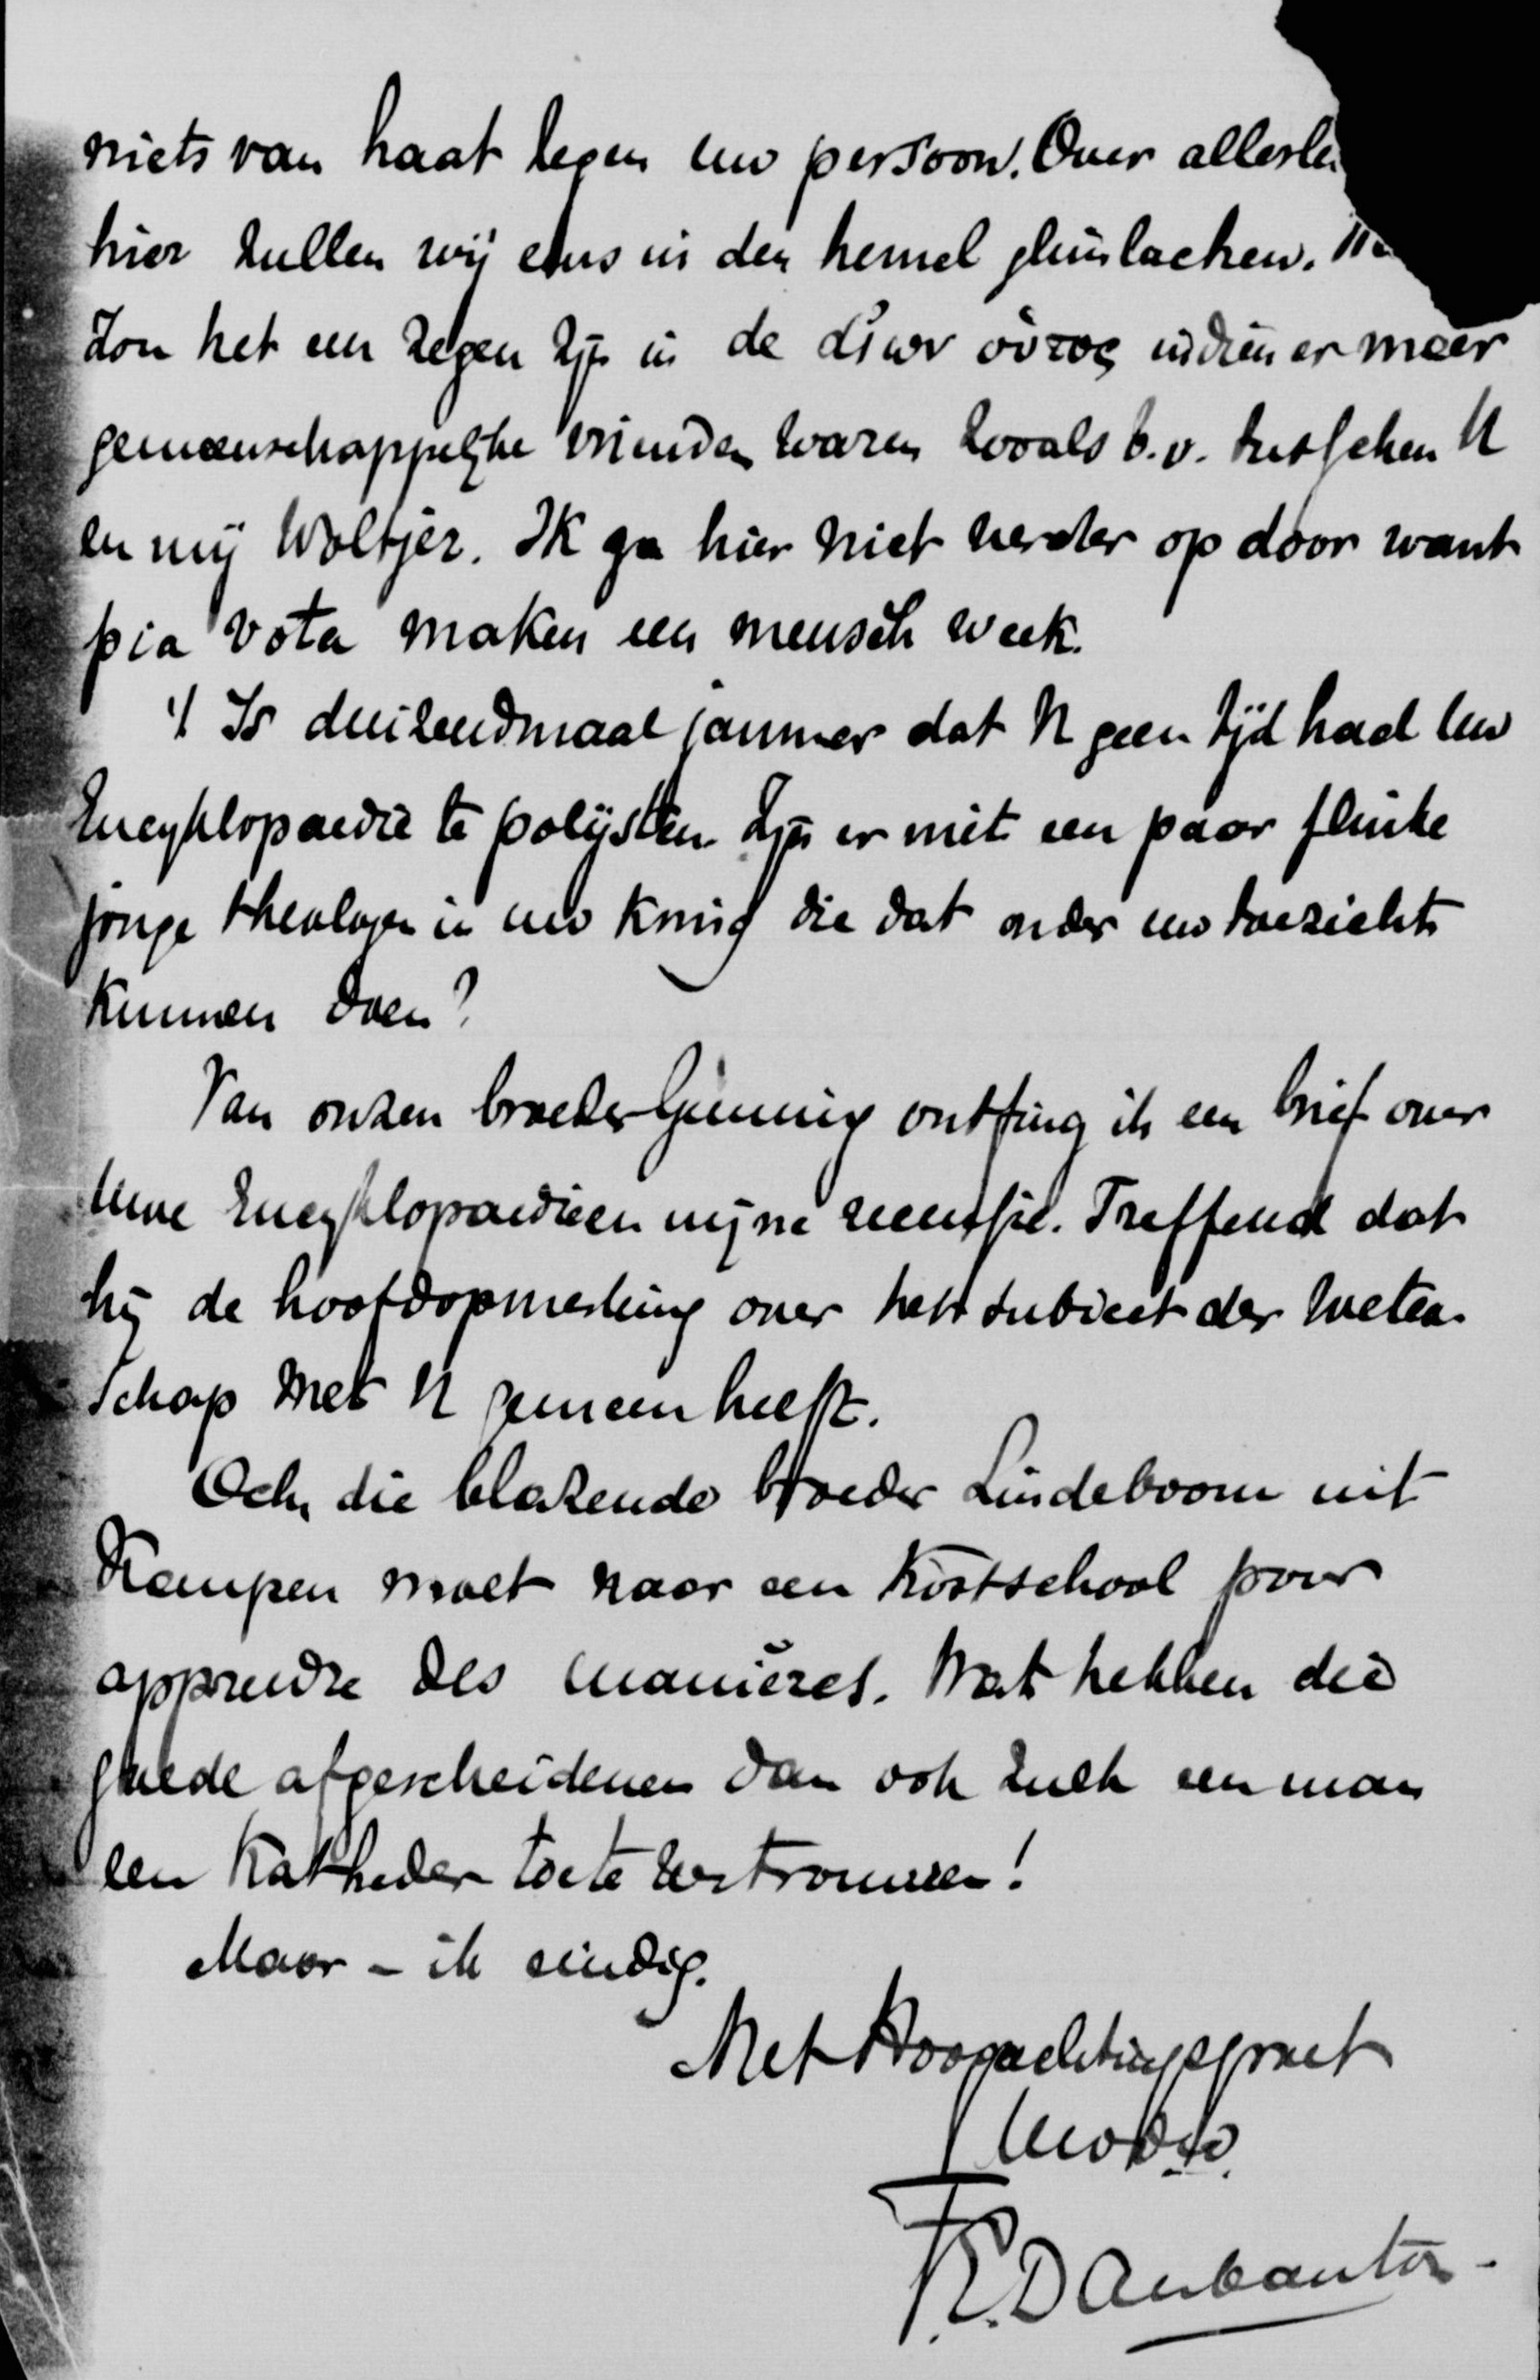 niets van haat tegen uw persoon. Over allerle
hier zullen wij eens in den hemel glimlachen.
Zou het een zegen zijn in de indien er meer
gemeenschappelijke vrienden waren zooals b.v. tusschen U
en mij Woltjer. Ik ga hier niet verder op door want
pia vota maken een mensch week.
't Is duizendmaal jammer dat U geen tijd had uw
Encyklopaedie te polijsten. Zijn er niet een paar flinke
jonge theologen in uw kring die dat onder uw toezicht
kunnen doen?
Van onzen broeder Gunning ontfing ik een brief over
Uwe Encyklopaedie en mijne recensie. Treffend dat
hij de hoofdopmerking over het subject der weten-
schap met U gemeen heeft.
Och, die blazende broeder Lindeboom uit
Kampen moet naar een kostschool pour
apprendre des manières. Wat hebben die
goede afgescheidenen dan ook zulk een man
een Katheder toe te vertrouwen!
Maar – ik eindig.
Met Hoogachtingsgroet
Uw
F.E. Daubanton